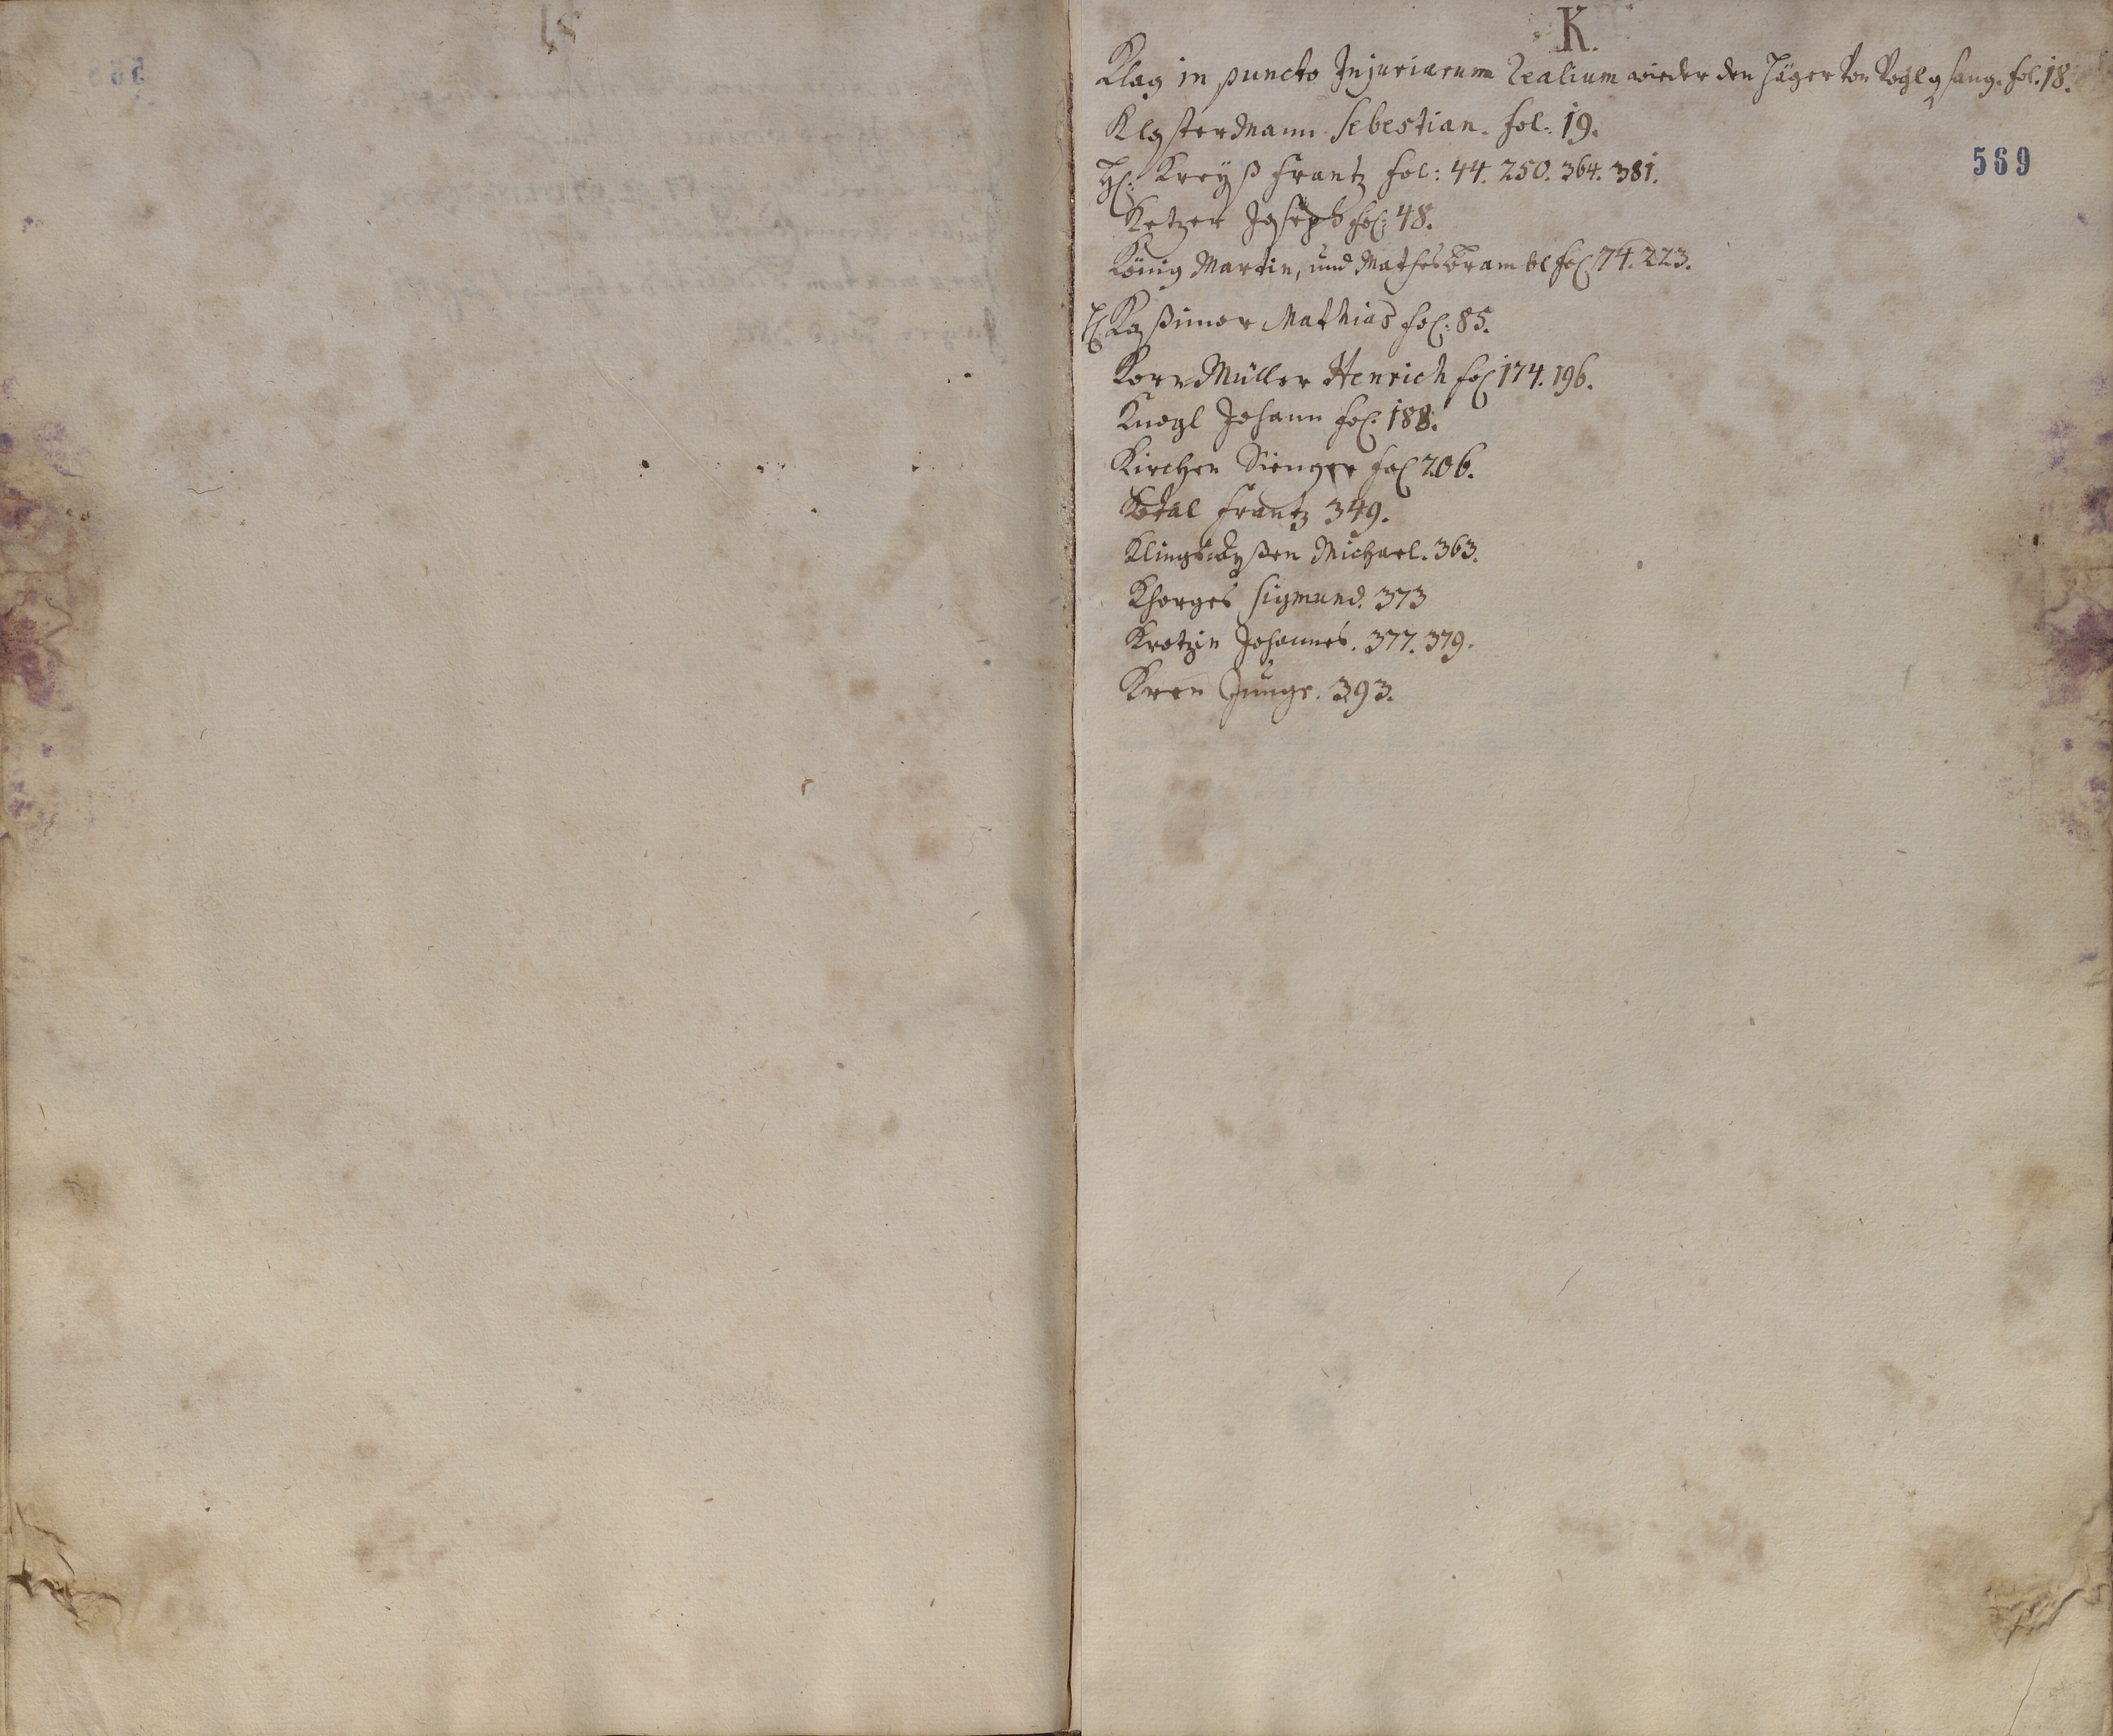 K.
Klag in puncto Injuriarum realium wieder den Jäger von Voglgsang. fol. 18.
KlosterMann Sebestian. fol: 19.
569
H: Kreyß Frantz fol: 44. 250. 364. 381.
Ketzer Joseph fol: 48.
König Martin, und Mathes Brambl fol 74. 223.
H: Koßimor Mathias fol: 85.
Korn-Müller Henrich fol 174. 196.
Knogl Johann fol. 188.
Kirchen Sienger fol 206.
Kotal Frantz 349.
Michael. 363.
Khorges Sigmund. 373
Krotzin Johannes. 377. 379.
Kren Junge. 393.